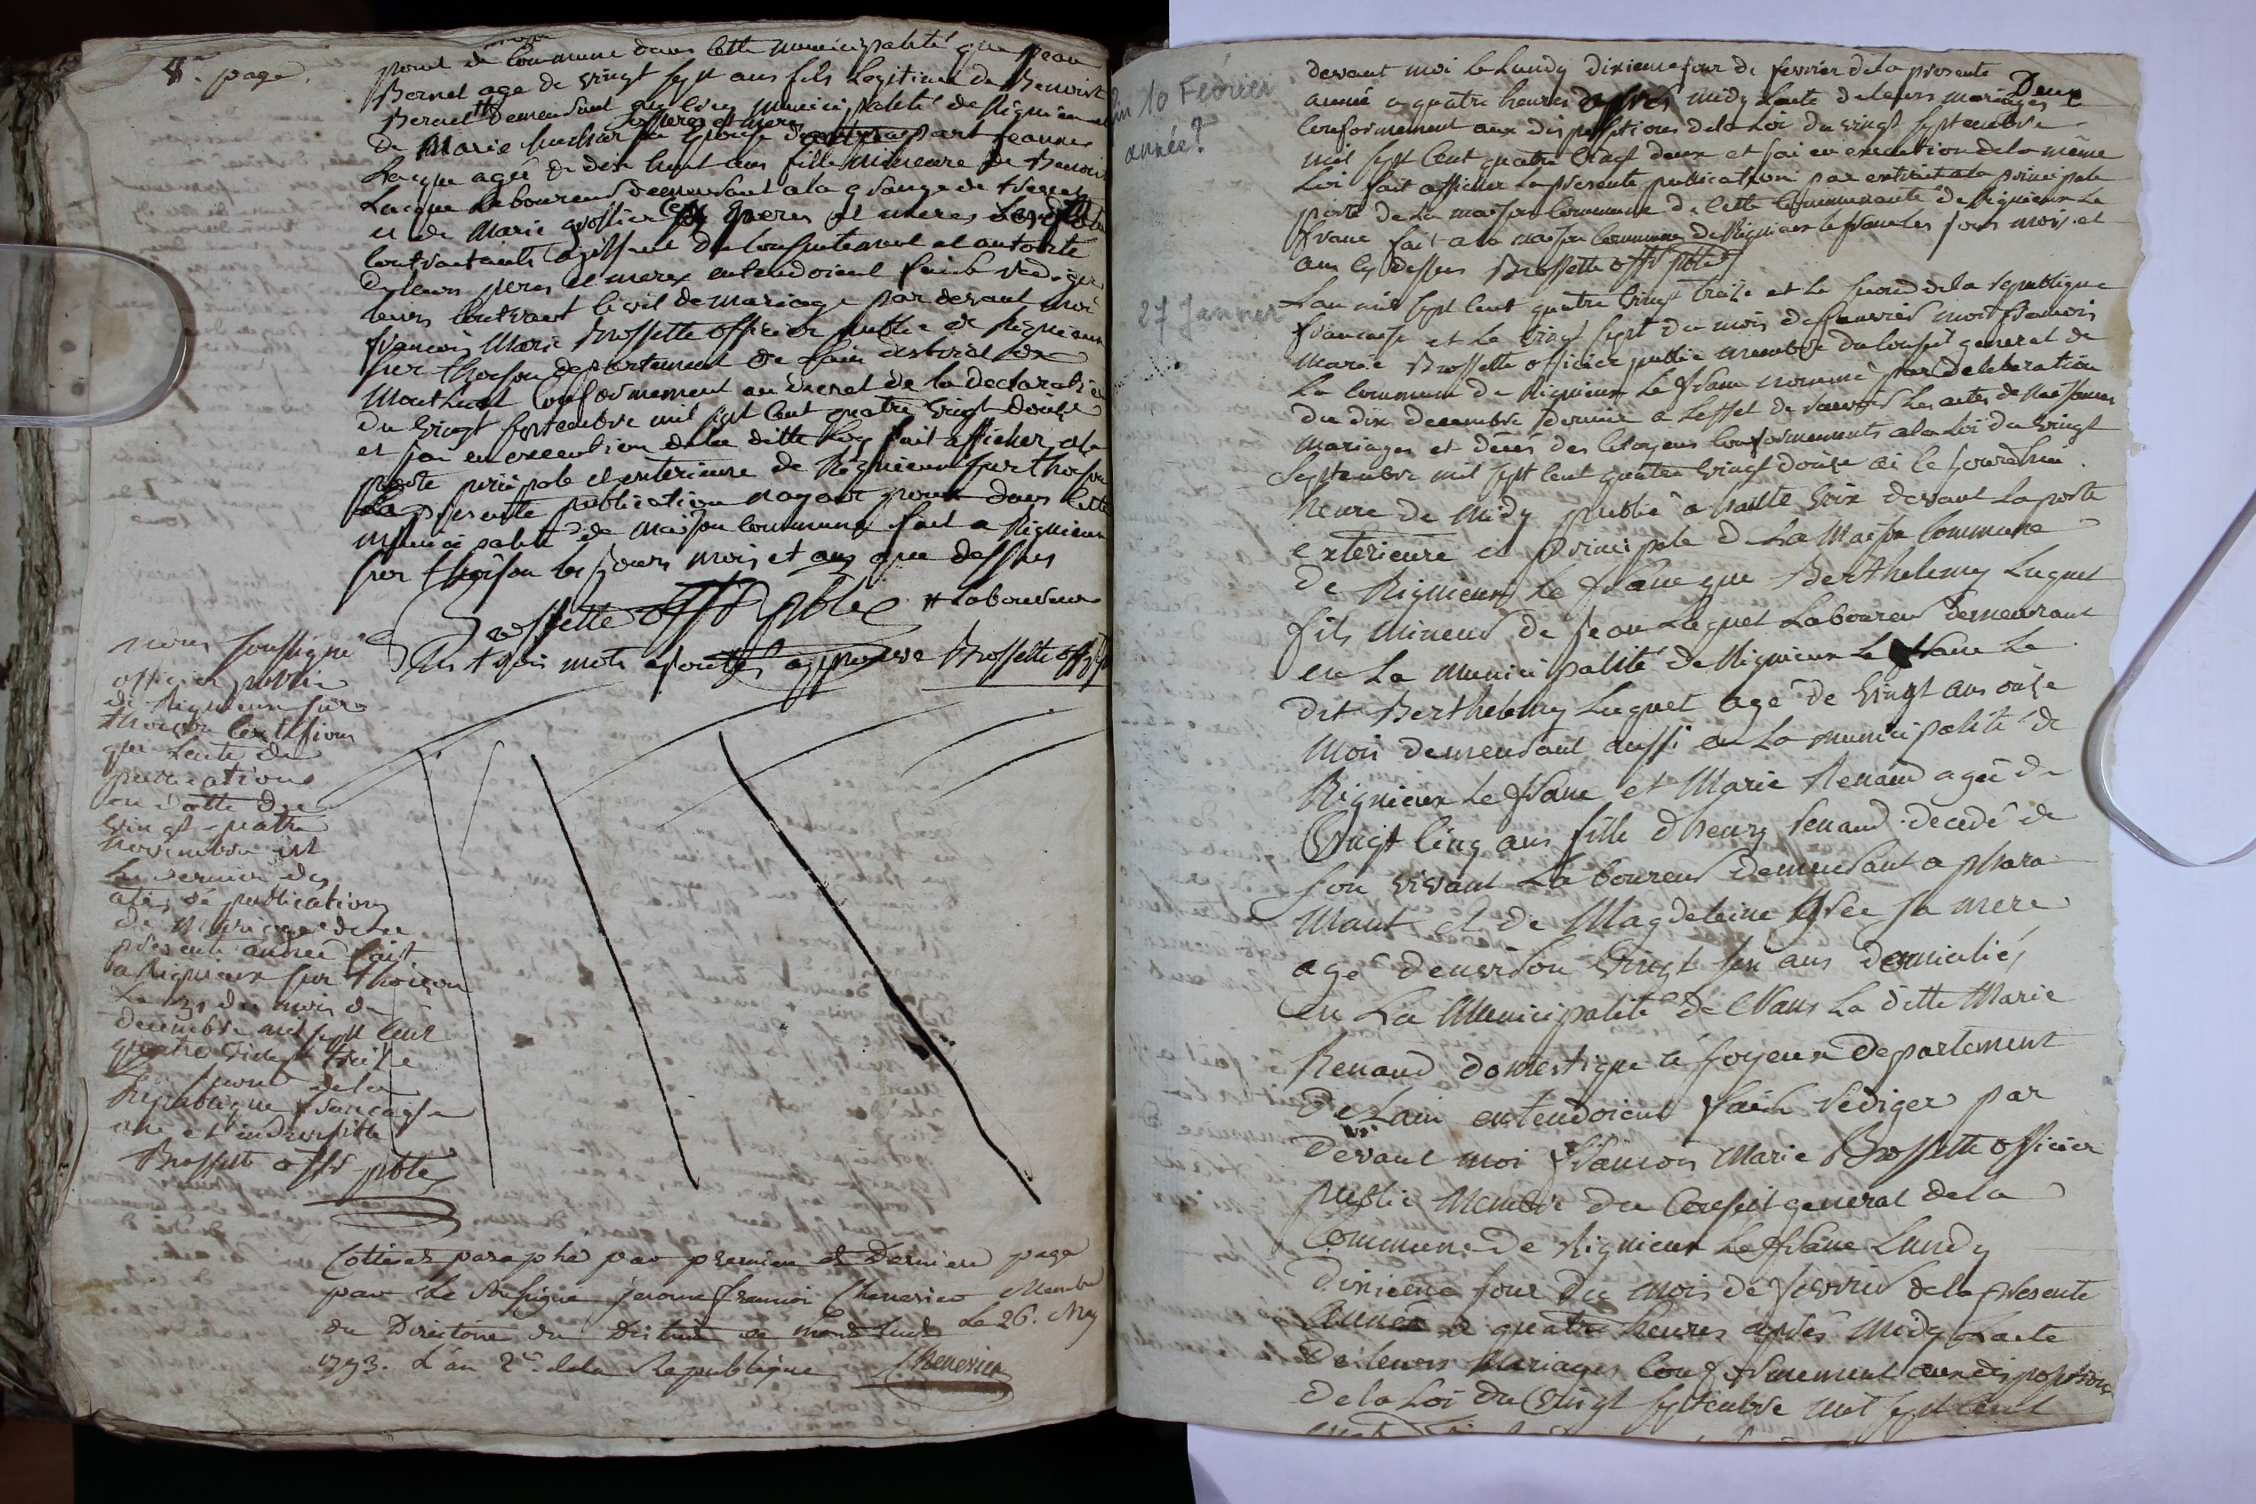 8e. page.
point de maison Commune dans cette municipalité que jean
Bernet age de vingt sept ans fils Legitime de Benoist
Bernet # demeurant en cette municipalité de Rignieux et
de Marie son Epouse d'autre part jeanne
Luque agée de dix huit ans fille Mineure de Benoist
Luque Laboureur demeurant a la grange de
et de Marie ses peres et meres
Contractants agissant du Consentement et autorité
de leurs peres et meres entendoient faire rediger
leurs Contract civil de mariage par devant moi
françois Marie Brossette officier public de Rignieux
sur thoison departement de Lain district de
Montluel Conformement au decret de la declaration
du vingt septembre mil sept cent quatre vingt douze
et jai en execution de la ditte Loy fait afficher a la
porte principale et exterieure de Rignieux sur thoison
La presente publication nayant point dans cette
municipalité de maison Commune fait a Rignieux
sur thoison les jours mois et ans que dessus
Brossette offr pble # Laboureur
Les trois mots ajoutés approuvé Brossette off p
nous soussigné
officier public
de Rignieux sur
thoison Certifions
que Lacte de
publications
en datte du
vingt quatre
novembre est
le dernier des
actes de publications
de Mariage de la
presente année fait
a Rignieux sur thoison
Le 31 du mois de
decembre mil sept cent
quatre vingt treize
second de la
Republique francaise
une et indivisible
Brossette offr pble
Cottes et paraphé par premiere et Derniere page
par Le Soussigné jerome françois Chenevier Membre
du Directoire du District de montluel Le 26. May
1793. L'an 2e. de la Republique Chenevier
un 10 Février
année?
27 Janvier
Deux
devant moi Le Lundy dixieme jour de fevrier de la presente
année a quatre heures après midy Lacte de leurs mariages
Conformement aux dispositions de la Loi du vingt septembre
mil sept cent quatre vingt douze et jai en execution de la même
Loi fait afficher La presente publication par extrait a la principale
porte de La maison Commune de Cette Communauté de Rignieux Le
franc fait a la maison Commune de Rignieux le franc Les jours mois et
ans cy dessus Brossette offr pble
Lan mil sept cent quatre vingt treize et Le second de la republique
francaise et le vingt sept du mois de janvier moi françois
Marie Brossette officier public membre du Conseil general de
La Commune de Rignieux Le franc nommé par deliberation
du dix decembre dernier a Leffet de recevoir Les actes de Naissances
Mariages et décès des Citoyens Conformement a la Loi du vingt
Septembre mil sept cent quatre vingt douze ai Ce jourdhui
heure de Midy publié a haute voix devant La porte
exterieure et principale de La Maison Commune
de Rignieux le franc que Berthelemy Luquet
fils Mineur de jean Luquet Laboureur demeurant
en La municipalité de Rignieux Le franc Le
dit Berthelemy Luquet agé de vingt ans onze
Mois demeurant aussi en La municipalité de
Rignieux Le franc et Marie Renaud agée de
Vingt cinq ans fille dhenry Renaud decedé de
son vivant Laboureur demeurant a phara
mant et de Magdeleine sa mere
agé denviron vingt six ans domiciliés
en La Municipalité de La ditte Marie
Renaud domestique a joyeux Departement
de Lain entendoient faire rediger par
devant moi françois Marie Brossette officier
public Membre du Conseil general de la
Commune de Rignieux Le franc Lundy
dixieme jour du mois de fevrier de la presente
année a quatre heures après midy Lacte
de leurs Mariages Conformement aux dispositions
de la Loi du vingt septembre mil sept cent